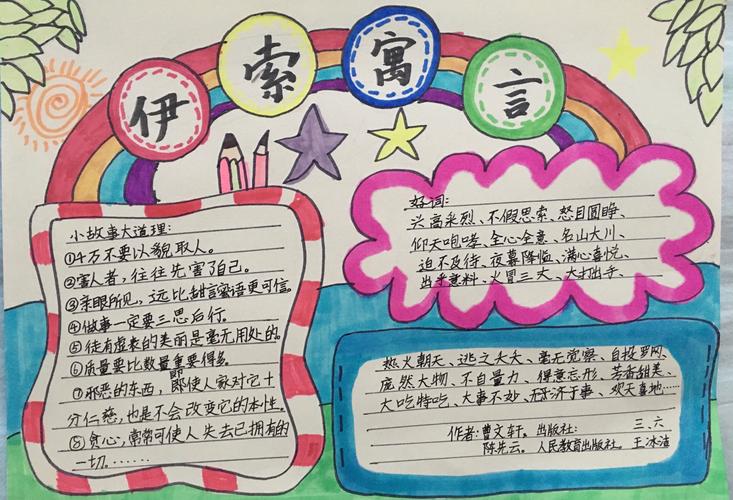 伊索寓言
小故事大道理:
①千万不要以貌取人。
②害人者,往往先害了自己。
③亲眼所见,远比甜言蜜语更可信。
④做事一定要三思后行。
⑤徒有虚表的美丽是毫无用处的。
⑥质量要比数量重要得多。
⑦邪恶的东西,即使人敵对它十
分仁慈,也是不会改变它的本性。
⑧贪心,常常可使人失去已拥有的
一切。……
好词:
兴高采烈、不假思索、怒目圆睁、
仰天咆哮、全心全意、名山大川、
迫不及待、夜幕降临、满心喜悦、
出乎意料、火冒三大、大打出手、
热火朝天、逃之夭夭、毫无觉察、自投罗网、
庞然大物、不自量力、得意忘形、芳香甜美、
大吃特吃、大事不妙、无济于事、欢天喜地……
作者:曹文轩。出版社: 三、六
陈先云。人民教育出版社。王冰渣